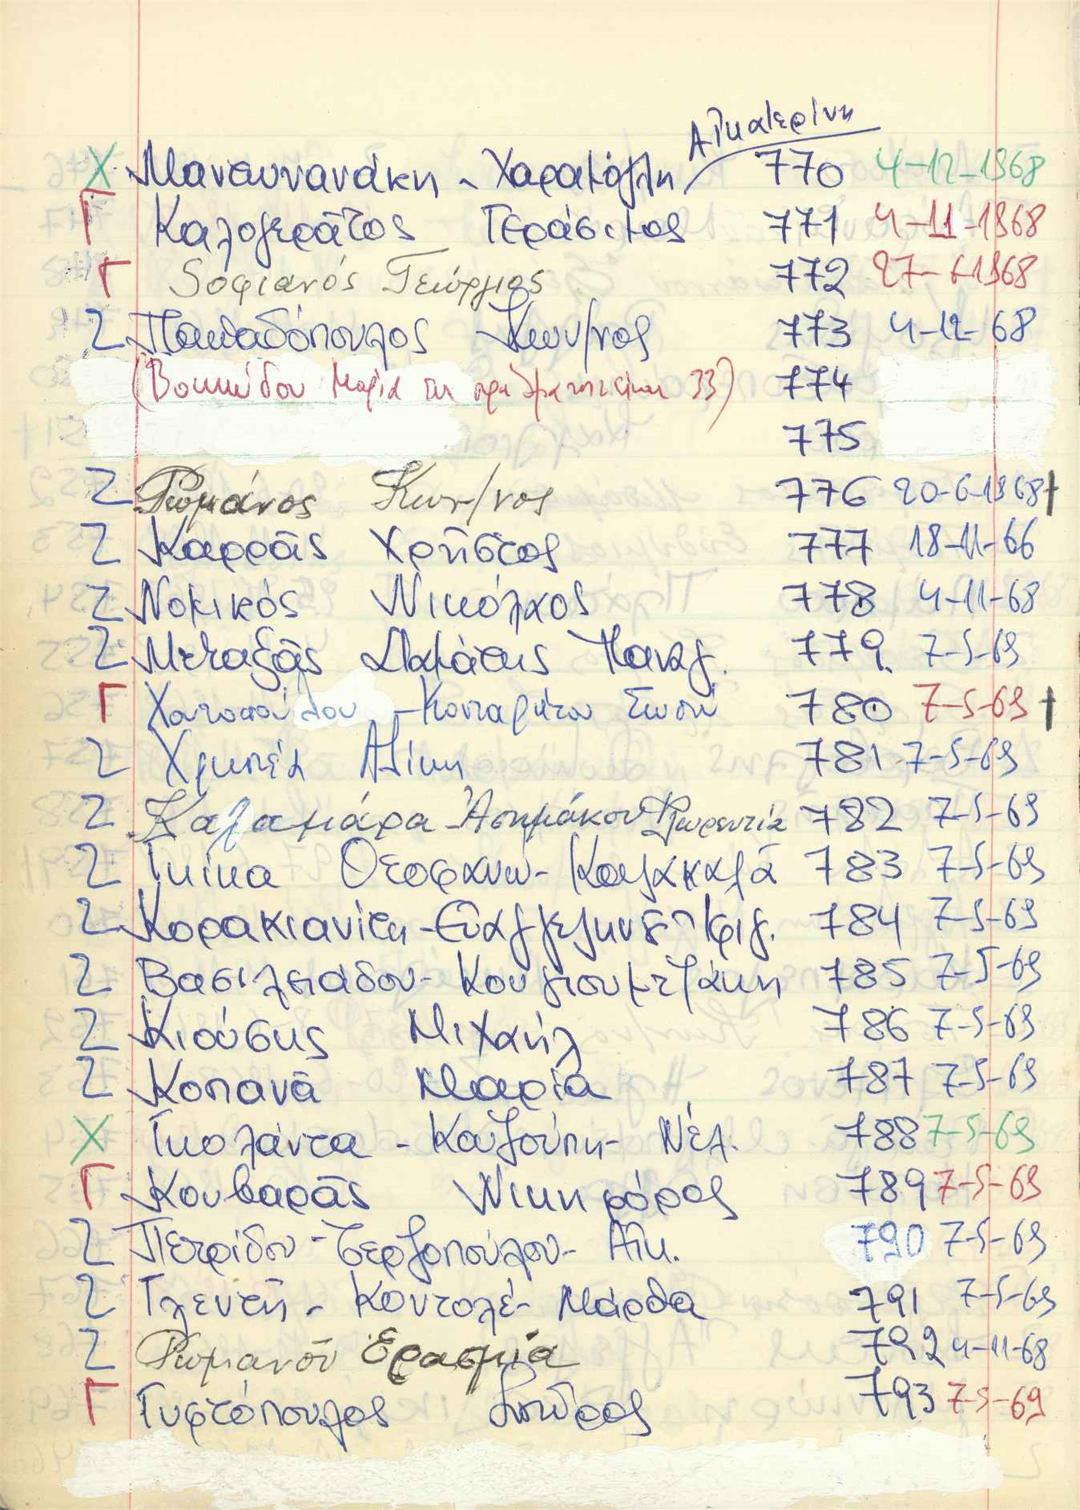 Αικατερίνη
Χ Μανουνανάκη - Χαραμόγλη 770 4-12-1968
Γ Καλογεράτος Γεράσιμος 771 4-11-1968
Γ Σοφιανός Γεώργιος 772 27-6-1968
Ζ Παπαδόπουλος Κων/νος 773 4-12-68
Μαρία 33) 774
775
Ζ Ρωμάνος Κων/νος 776 20-6-1968 †
Ζ Καρράς Χρήστος 777 18-11-66
Ζ Νομικός Νικόλαος 778 4-11-68
Ζ Μεταξάς Σταμάτης Παναγ. 779 7-5-69
Γ Χατοπούλου - Κονταράτου 780 7-5-69 †
Ζ Αλίκη 781 7-5-69
Ζ Καλαμάρα Ασημάκου Φλωρεντία 782 7-5-69
Ζ Γκίκα Θεοφανώ - Καλακαλά 783 7-5-69
Ζ Κορακιανίτη - 784 7-5-69
Ζ Βασιλειάδου - Κουγιουμτζάκη 785 7-5-69
Ζ Κιούσης Μιχαήλ 786 7-5-69
Ζ Κοπανά Μαρία 787 7-5-69
Χ Γκολάντα - Καζούπη - Νέλ. 788 7-5-69
Γ Κουβαράς Νικηφόρος 789 7-5-69
Ζ Πετρίδου - Τερζοπούλου - Αικ. 790 7-5-69
Ζ Γλεντή - Κοντολέ - Μάρθα 791 7-5-69
Ζ Ρωμανού Ερασμία 792 4-11-68
Γ Γυφτόπουλος Σπύρος 793 7-5-69